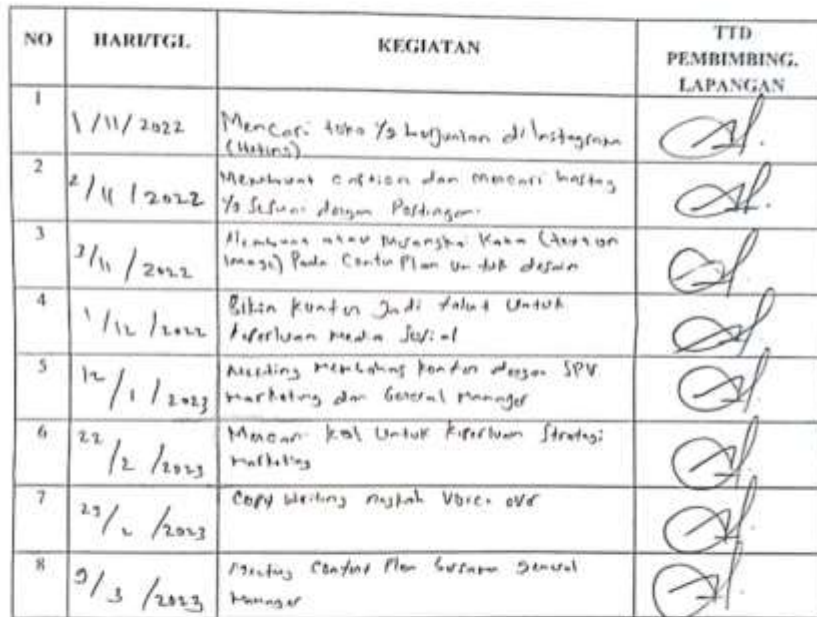 NO HARI/TGL KEGIATAN TTD PEMBIMBING. LAPANGAN
1 1/11/2022 Mencari toko yg berjualan di Instagram
2 2/11/2022 Membuat caption dan mencari hastag
yg Sesuai dengan Postingan.
3 3/11/2022 Membuat atau Merangkai Kata
Image) Pada Plan untuk desain
4 1/12/2022 Bikin Konten Jadi Talent Untuk
Keperluan Media Sosial
5 12/1/2023 Meeting Membahas Konten dengan SPV
Marketing dan General Manager
6 22/2/2023 Mencari Kol Untuk Keperluan Strategi
Marketing
7 /2023 Copy Writing naskah Voice over
8 9/3/2023 Meeting Content Plan bersama General
Manager